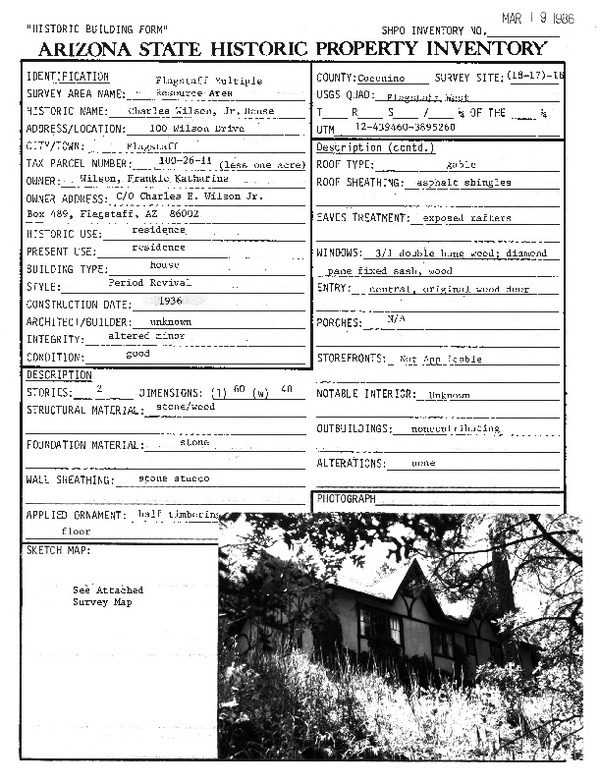 MAR 19 1986
"HISTORIC BUILDING FORM"
SHPO INVENTORY NO.
ARIZONA STATE HISTORIC PROPERTY INVENTORY
IDENTIFICATION
SURVEY AREA NAME: Flagstaff Multiple Resource Area
HISTORIC NAME: Charles Wilson, Jr. House
ADDRESS/LOCATION: 100 Wilson Drive
CITY/TOWN: Flagstaff
TAX PARCEL NUMBER: 100-26-11 (less one acre)
OWNER: Wilson, Frankie Katharine
OWNER ADDRESS: C/O Charles E. Wilson Jr.
Box 489, Flagstaff, AZ 86002
HISTORIC USE: residence
PRESENT USE: residence
BUILDING TYPE: house
STYLE: Period Revival
CONSTRUCTION DATE: 1936
ARCHITECT/BUILDER: unknown
INTEGRITY: altered minor
CONDITION: good
DESCRIPTION
STORIES: 2 DIMENSIONS: (l) 60 (w) 40
STRUCTURAL MATERIAL: stone/wood
FOUNDATION MATERIAL: stone
WALL SHEATHING: stone stucco
APPLIED ORNAMENT: half timbering
floor
SKETCH MAP:
See Attached
Survey Map
COUNTY: Coconino SURVEY SITE: (18-17)-18
USGS QUAD: Flagstaff West
T R S / ¼ OF THE ¼
UTM 12-439460-3895260
Description (contd.)
ROOF TYPE: gable
ROOF SHEATHING: asphalt shingles
EAVES TREATMENT: exposed rafters
WINDOWS: 3/1 double hung wood; diamond
pane fixed sash, wood
ENTRY: central, original wood door
PORCHES: N/A
STOREFRONTS: Not Applicable
NOTABLE INTERIOR: Unknown
OUTBUILDINGS: noncontributing
ALTERATIONS: none
PHOTOGRAPH